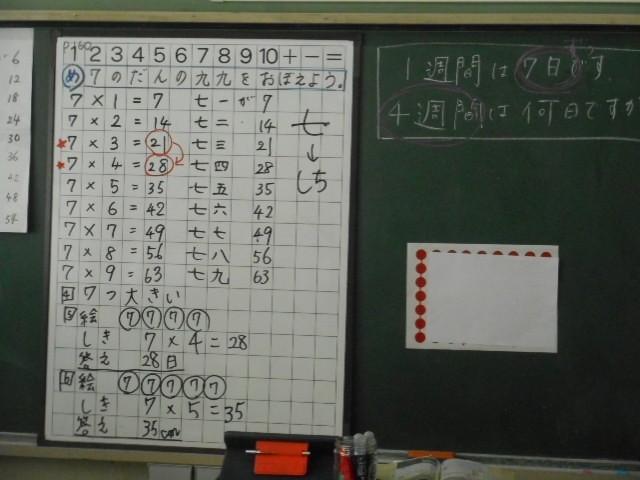 P.60
1 2 3 4 5 6 7 8 9 10 + - =
め 7のだんの九九をおぼえよう。
7 × 1 = 7 七一が 7
7 × 2 = 14 七二 14
* 7 × 3 = 21 七三 21
* 7 × 4 = 28 七四 28
7 × 5 = 35 七五 35
7 × 6 = 42 七六 42
7 × 7 = 49 七七 49
7 × 8 = 56 七八 56
7 × 9 = 63 七九 63
4 7つ大きい
5 絵 7 7 7 7
しき 7 × 4 = 28
答え 28日
6 絵 7 7 7 7 7
しき 7 × 5 = 35
答え 35cm
七
↓
しち
1週間は7日です。
4週間は何日ですか
6
12
18
24
30
36
42
48
54